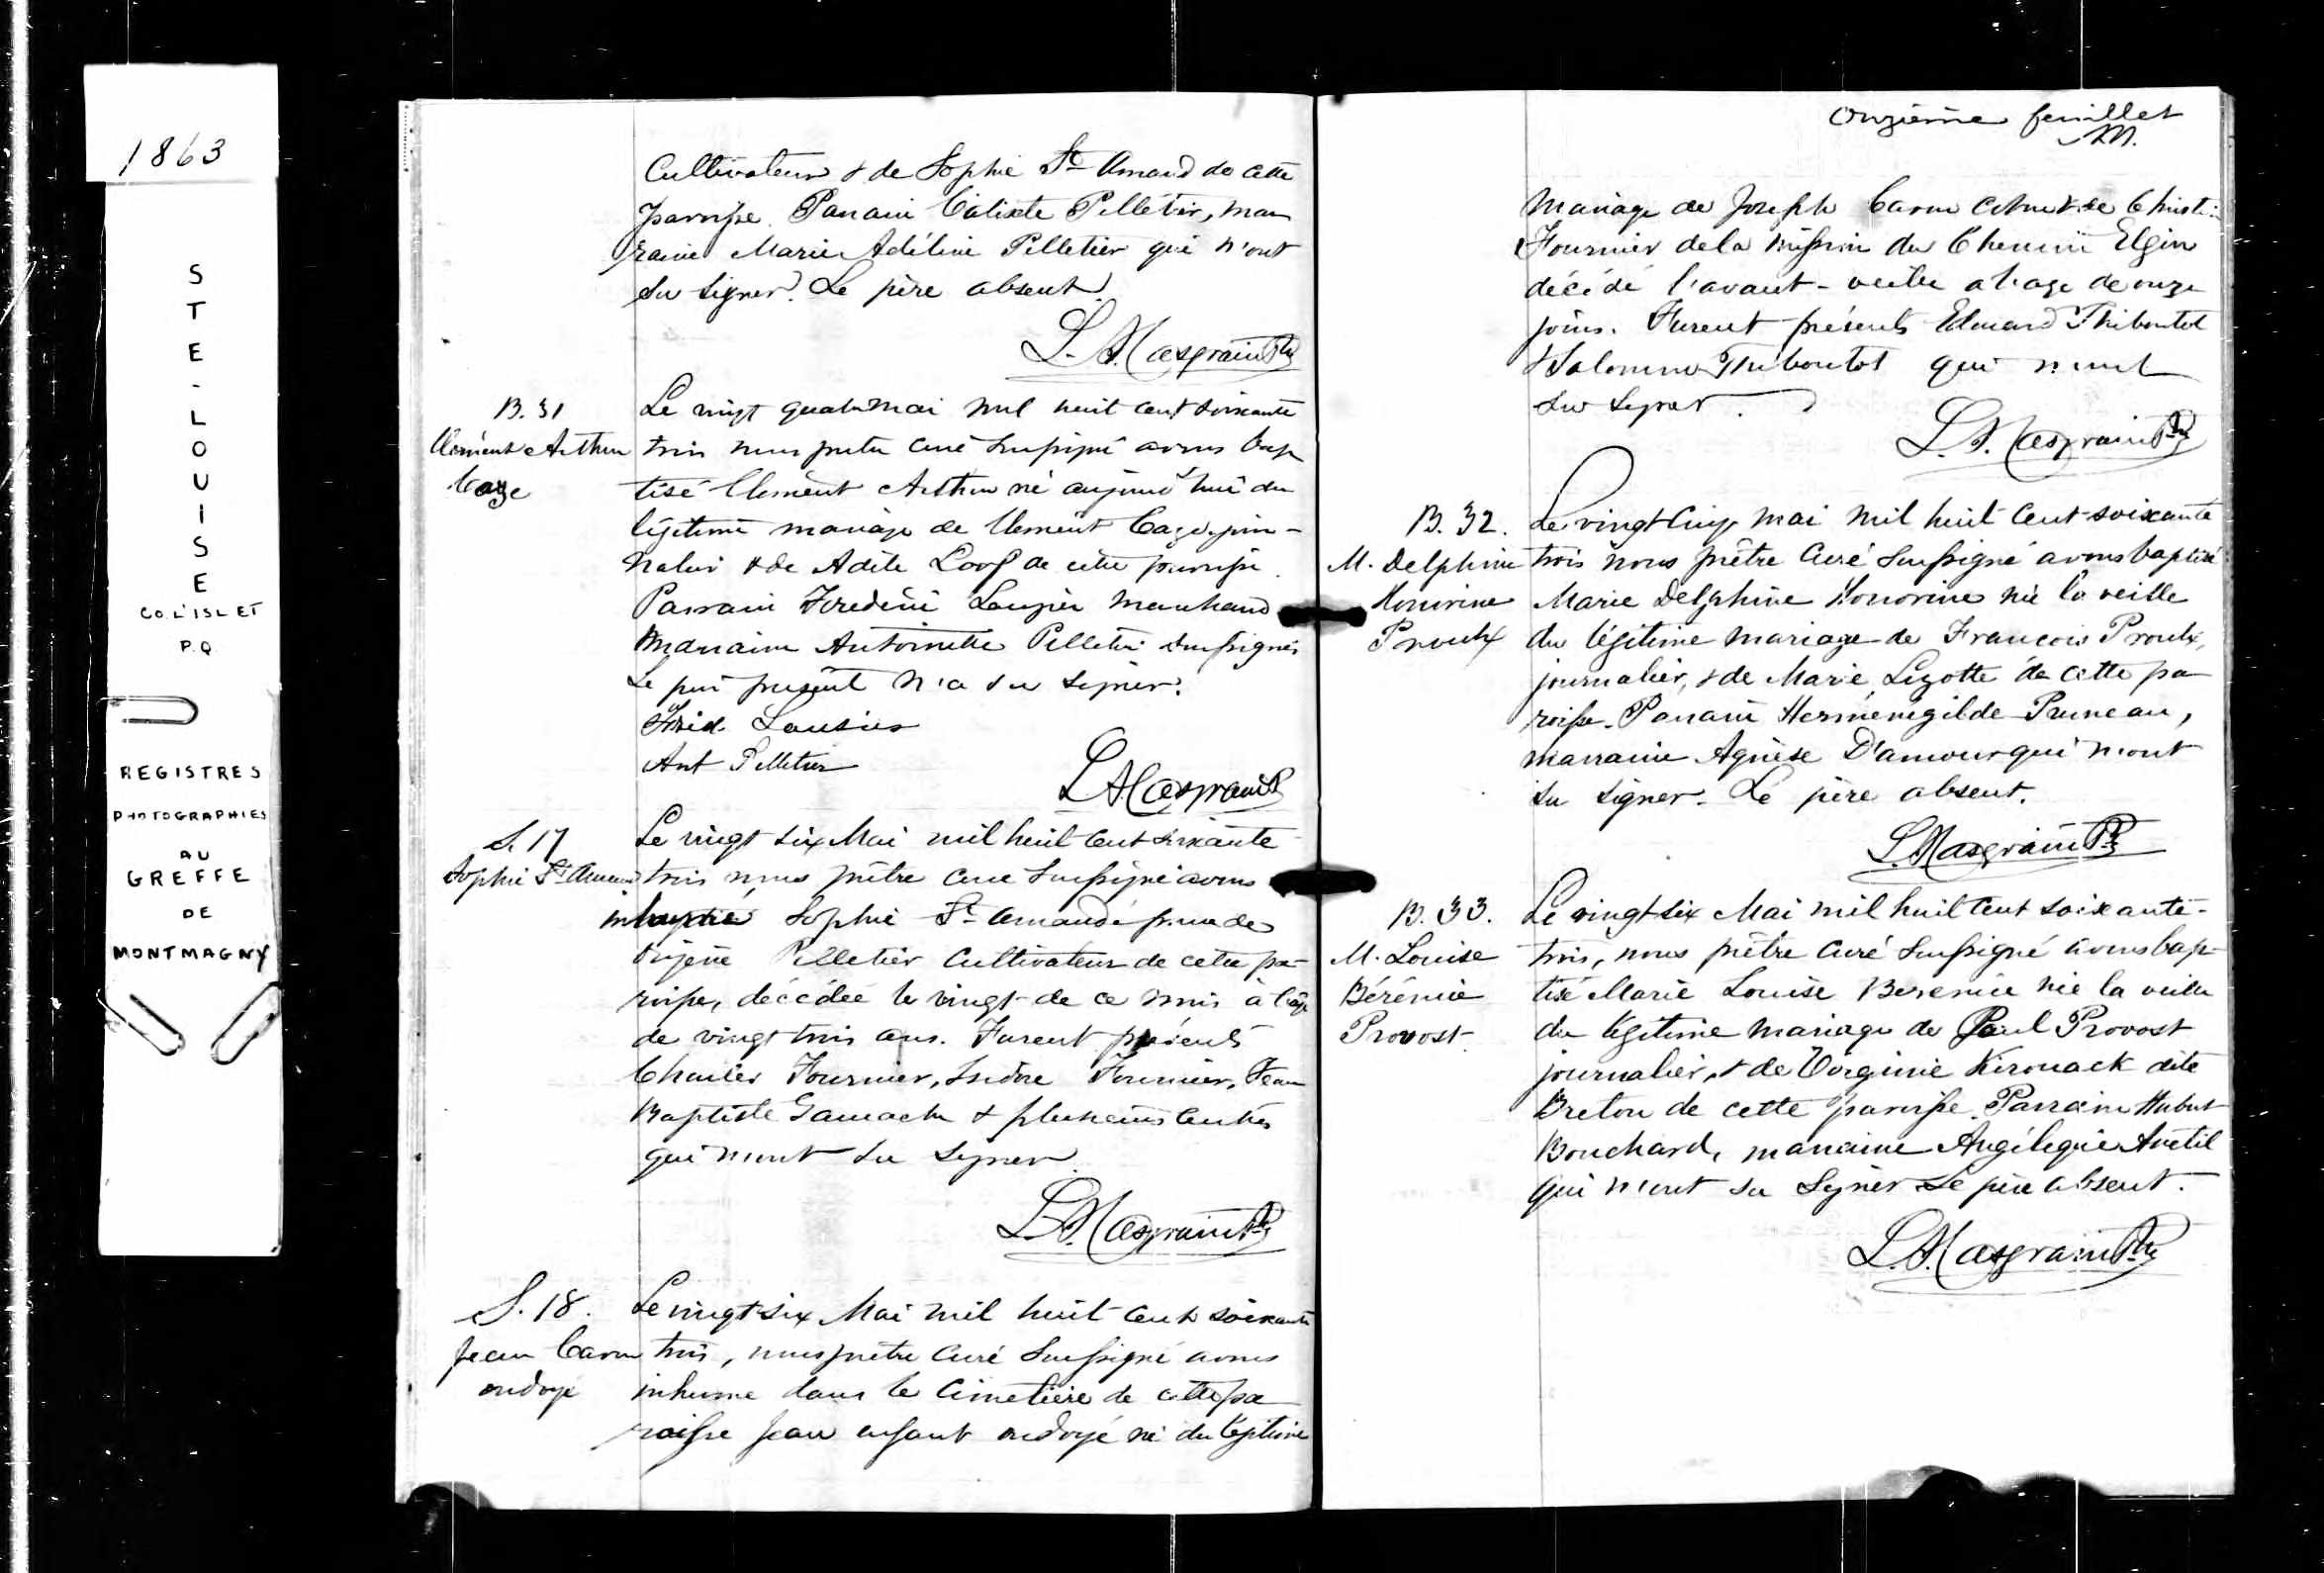 1863
STE-LOUISE
CO. L'ISLET
P.Q
REGISTRES
PHOTOGRAPHIES
AU
GREFFE
DE
MONTMAGNY
Cultivateur & de Sophie St Amand de cette
paroisse. Parrain Calixte Pelletier, mar
raine Marie Adéline Pelletier qui n'ont
su signer. Le père absent.
L. N. Casgrain Ptre
B. 31
Clément Arthur
Caze
Le vingt quatre mai mil huit cent soixante
trois nous prêtre curé soussigné avons bap
tisé Clément Arthur né aujourd'hui du
légitime mariage de Clément Caze, jour-
nalier & de Adèle Lord de cette paroisse.
Parrain Frederic Lauzier Marchand
Marraine Antoinette Pelletier soussignés
Le père présent n'a su signer.
Fred. Lausier
Ant Pelletier
L N Casgrain P
S. 17
Sophie St Amand
Le vingt six Mai mil huit cent soixante
trois nous prêtre curé soussigné avons
inhumé Sophie St Amand épouse de
Pelletier Cultivateur de cette pa-
roisse, décédée le vingt de ce mois à l'âge
de vingt trois ans. Furent présents
Charles Fournier, Isidore Fournier, Jean
Baptiste Gamache & plusieurs autres
qui n'ont su signer
L. N. Casgrain Ptre
S. 18.
Jean Caron
ondoyé
Le vingt-six Mai mil huit cent soixante
trois, nous prêtre curé soussigné avons
inhumé dans le Cimetière de cette pa
roisse Jean enfant ondoyé né du légitime
Onzième feuillet
M.
Mariage de Joseph Caron & de Christi
Fournier de la mission du Chemin Elgin
décédé l'avant-veille a l'age de onze
jours. Furent présents Edouard Thiboutot
& Salomon Thiboutot qui n'ont
su signer.
L. N. Casgrain Ptre
B. 32.
M. Delphine
Honorine
Proulx
Le vingt cinq mai mil huit cent soixante
trois nous prêtre curé soussigné avons baptisé
Marie Delphine Honorine née la veille
du légitime mariage de Francois Proulx,
journalier, & de Marie Lizotte de cette pa
roisse. Parrain Herménégilde Pruneau,
marraine Agnèse D'amour qui n'ont
su signer. Le père absent.
L. N. Casgrain Ptre
B. 33.
M. Louise
Bérénice
Provost
Le vingt six Mai mil huit cent soixante-
trois, nous prêtre curé soussigné avons bap-
tisé Marie Louise Berenice née la veille
du légitime mariage de Paul Provost
journalier, & de Virginie Kirouack dite
Breton de cette paroisse. Parrain Hubert
Bouchard, marraine Angéleque Anctil
qui n'ont su signer Le père absent.
L. N. Casgrain Ptre